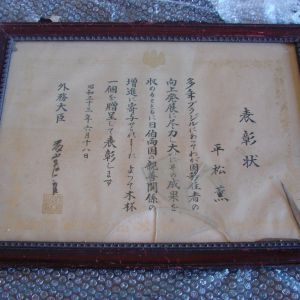 表彰状
平松薫
多年ブラジルにあつてわが国移住者の
向上発展に尽力し大いにその成果を
収めるとともに日伯両国の親善関係の
増進に寄与せられました よつて木杯
一個を贈呈して表彰します
昭和三十三年六月十八日
外務大臣